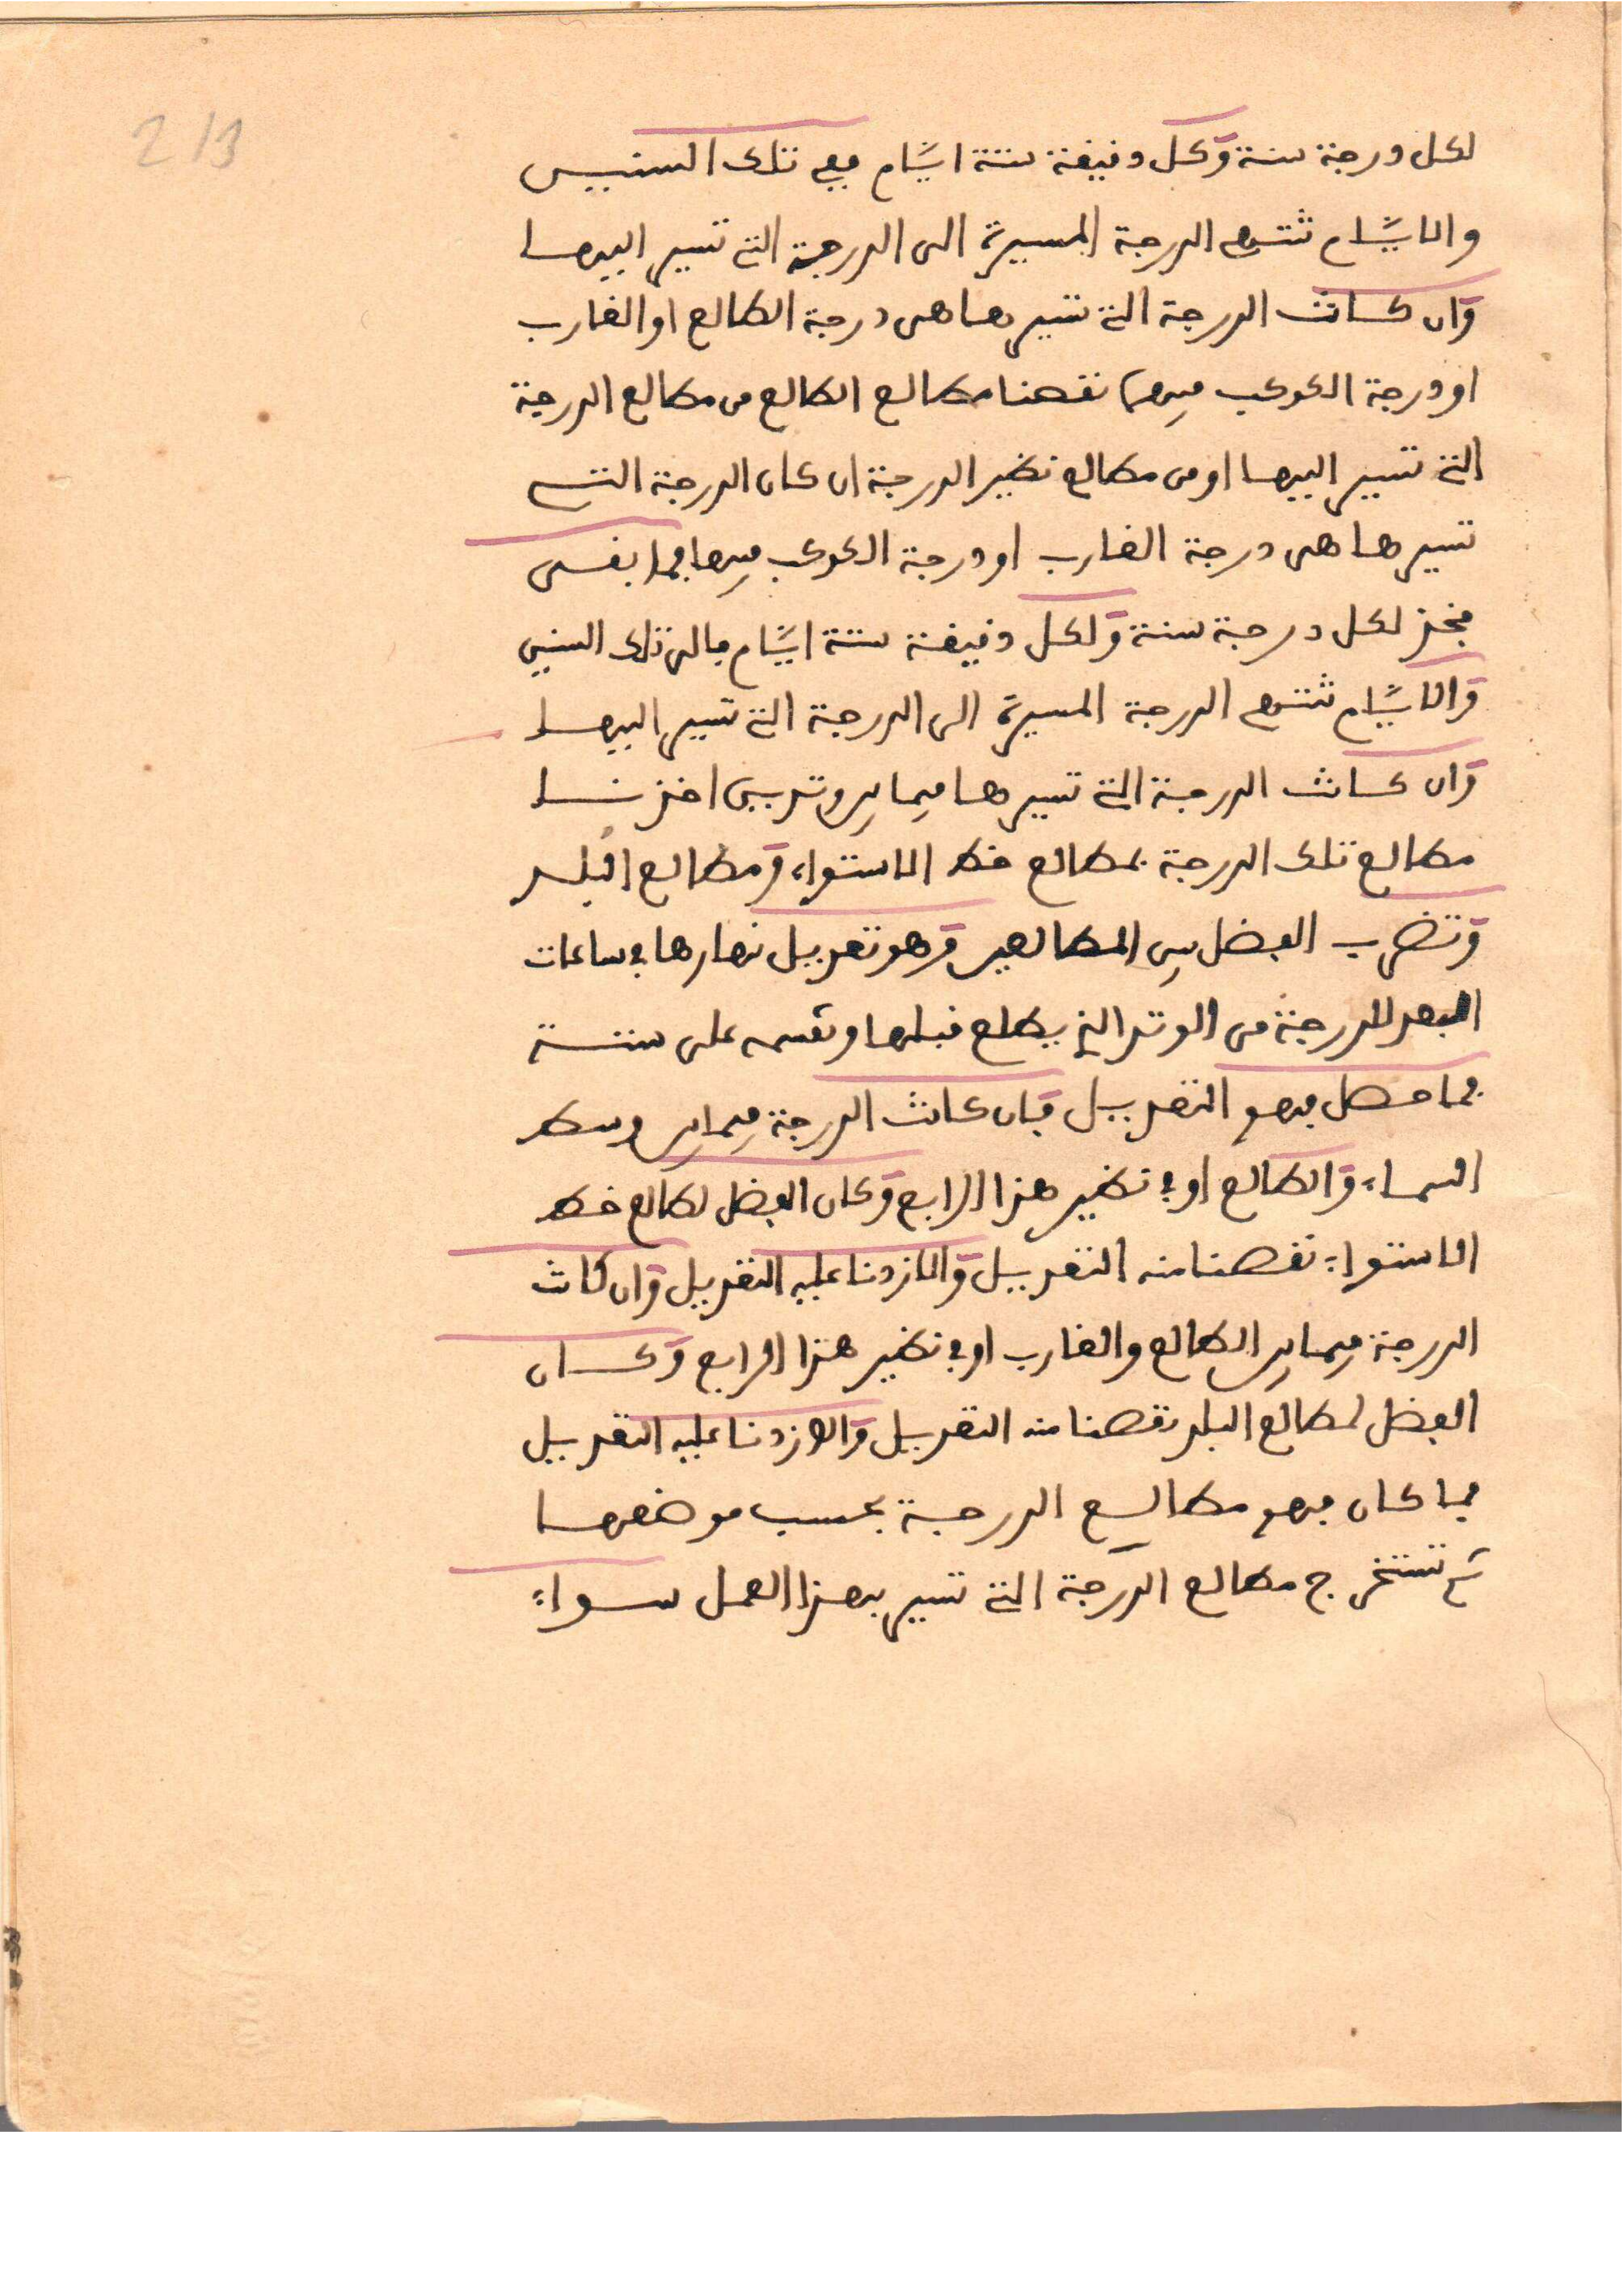 213
لكل درجة سنة وكل دقيقة ستة ايام ففي تلك السنين
والايام تنتهي الدرجة المسيرة الى الدرجة التي تسير اليها
وان كانت الدرجة التي تسيرها هي درجة الطالع او الغارب
او درجة الكوكب فيهما نقصنا مطالع الطالع من مطالع الدرجة
التي تسير اليها او من مطالع نظير الدرجة ان كان الدرجة التي
تسيرها هي درجة الغارب او درجة الكوكب فيها فما بقى
فخذ لكل درجة سنة ولكل دقيقة ستة ايام فالى تلك السنين
والايام تنتهي الدرجة المسيرة الى الدرجة التي تسير اليها
وان كانت الدرجة التي تسيرها فيما بين وتدين اخذنا
مطالع تلك الدرجة بمطالع خط الاستواء ومطالع البلد
وتضرب الفضل بين المطالعين وهو تعديل نهارها في ساعات
البعد للدرجة من الوتد الذي يطلع قبلها وتقسمه على ستة
فما حصل فهو التعديل فان كانت الدرجة فيما بين وسط
السماء والطالع او في نظير هذا الرابع وكان الفضل لطالع خط
الاستواء نقصنا منه التعديل والا زدنا عليه التعديل وان كانت
الدرجة فيما بين الطالع والغارب او في نظير هذا الرابع وكان
الفضل لمطالع البلد نقصنا منه التعديل والا زدنا عليه التعديل
فما كان فهو مطالع الدرجة بحسب موضعها
ثم تستخرج مطالع الدرجة التي تسير بهذا العمل سواء